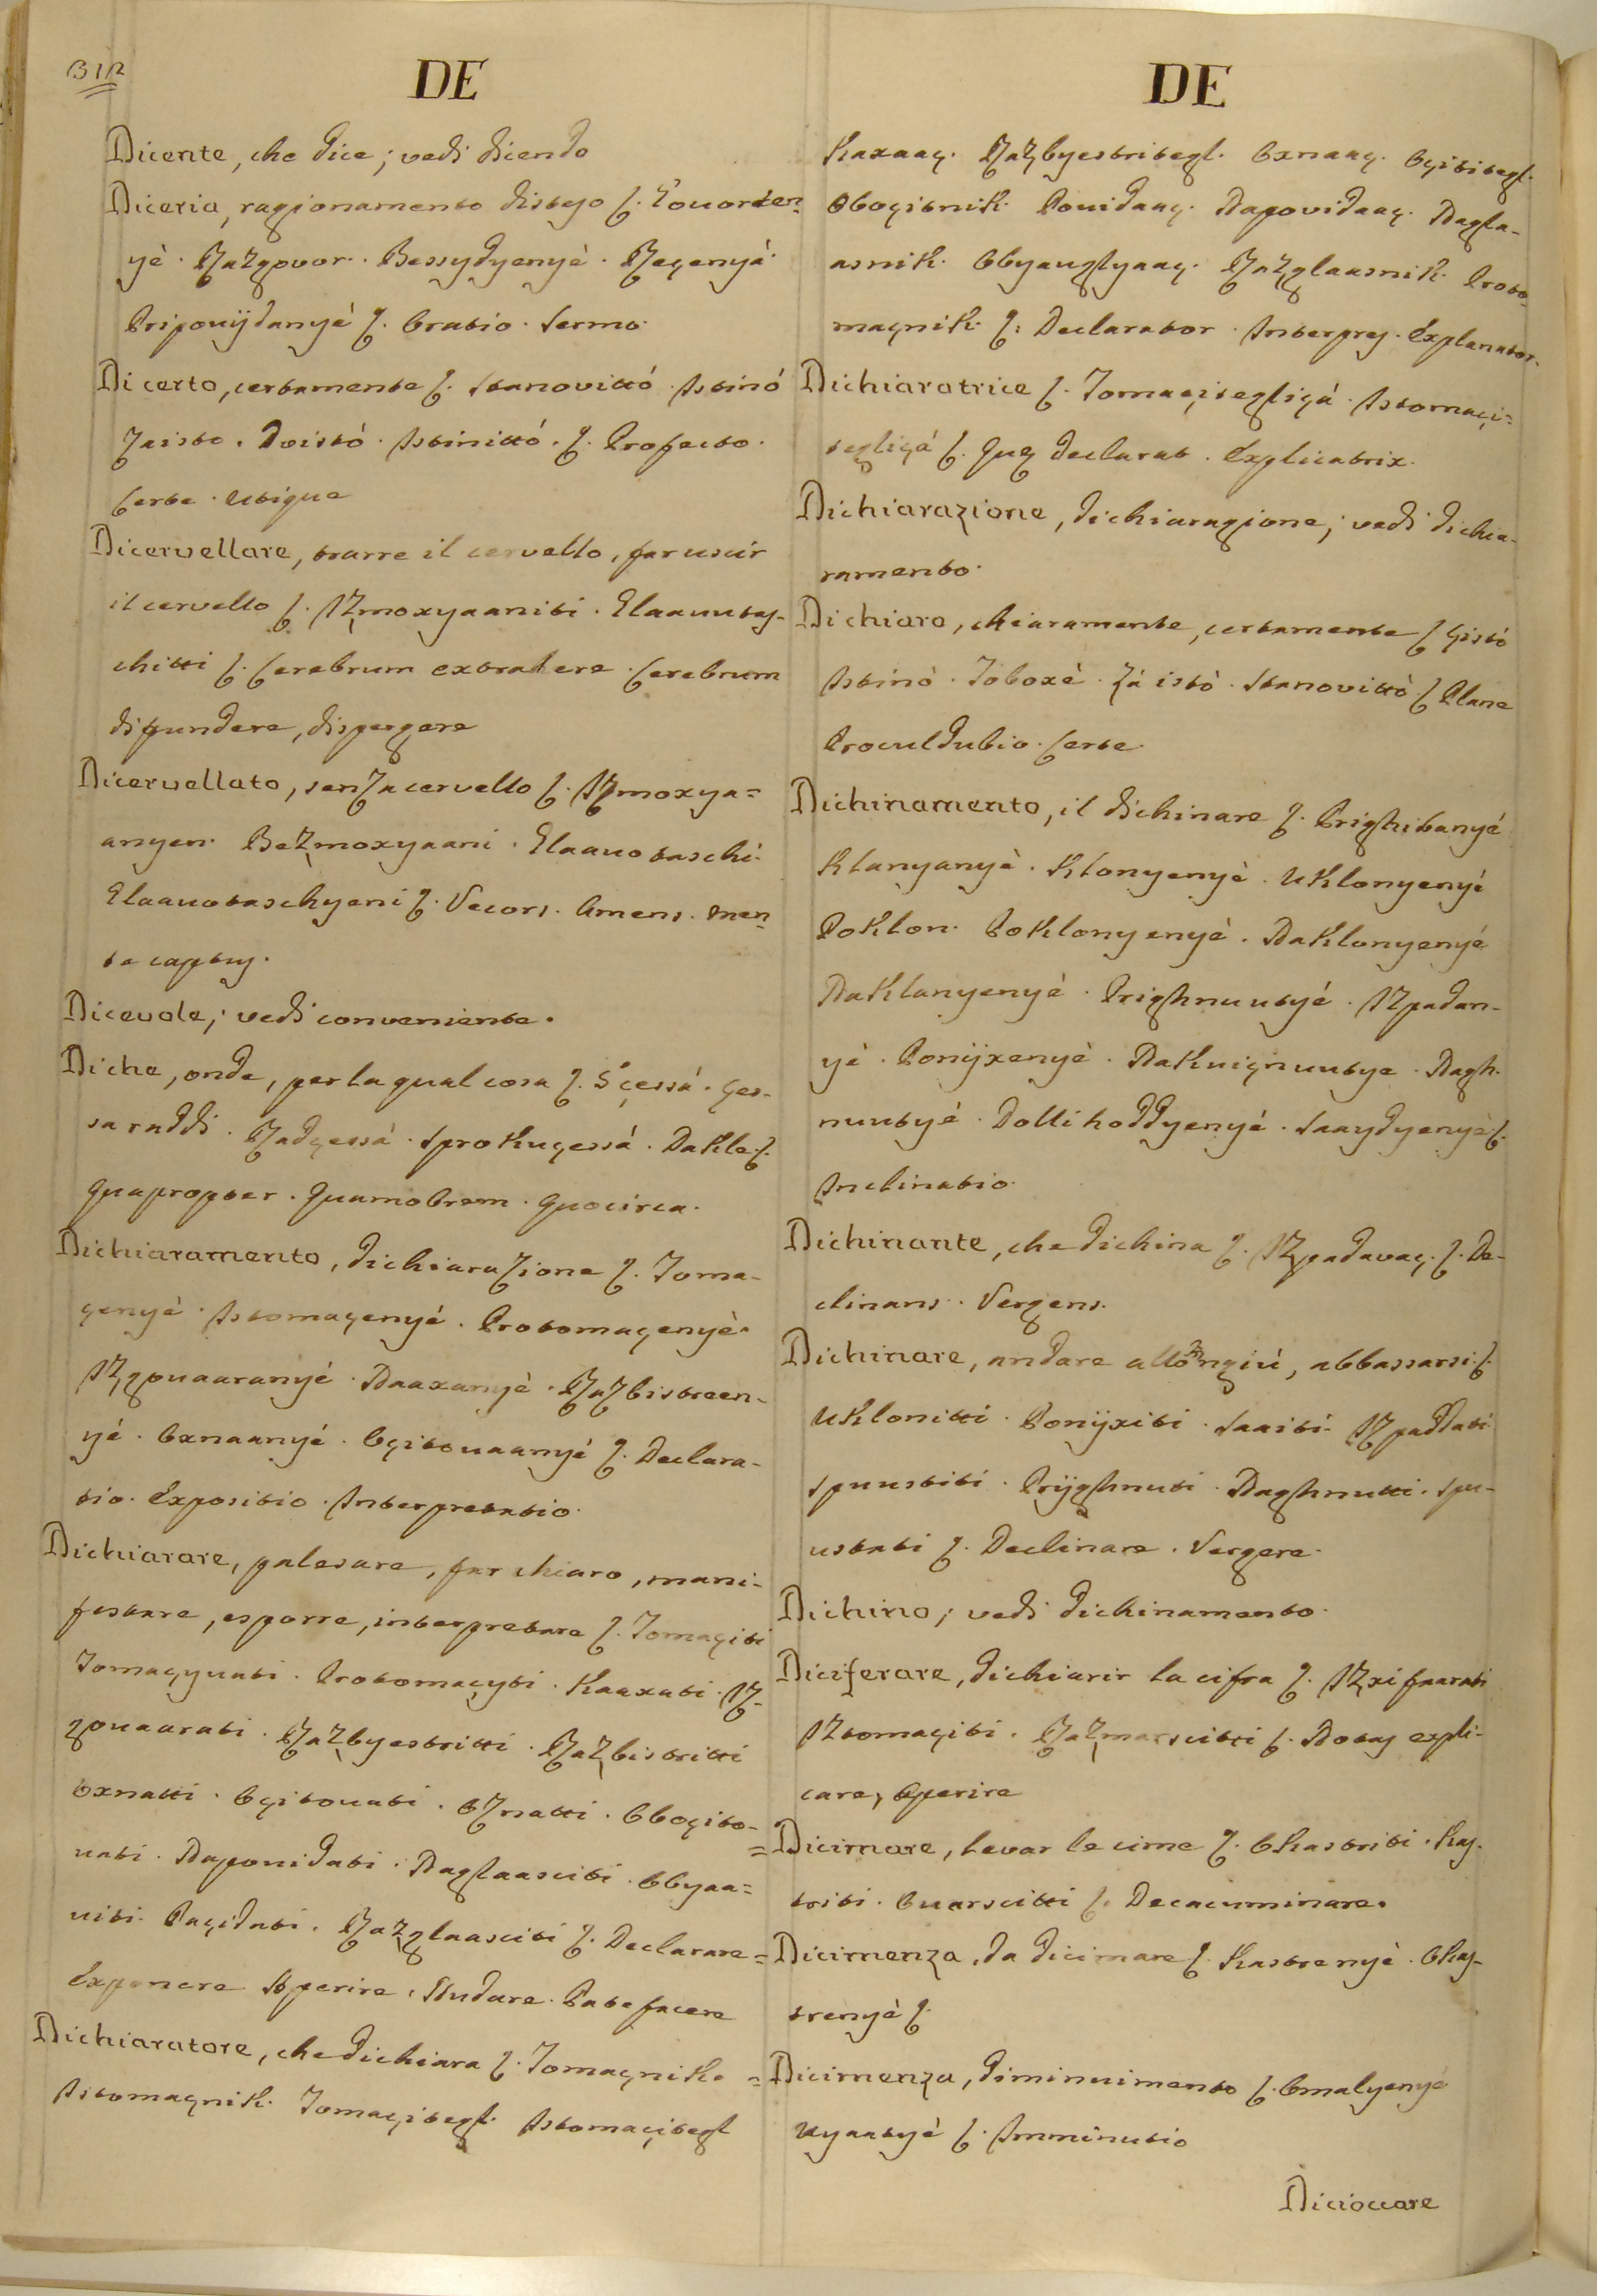 312
DE
Dicente, che dice; vedi dicendo
Diceria, ragionamento disteso ſ. Govorden=
yè. Razgovor. Bessydyenyè. Reçenyá.
Pripovijdanyè ſ. Oratio. Sermo.
Di certo, certamente ſ. Stanovittó. Istinó
Zaisto. Doistó. Istinittó. ſ. Profecto.
Certe. Utique
Dicervellare, trarre il cervello, far uscir
il cervello ſ. Izmoxyaaniti. Glaauutas-
chitti ſ. Cerebrum extradere. Cerebrum
difundere, dispergere
Dicervellato, senza cervello ſ. Izmoxya=
anyen. Bezmoxyaani. Glaauotaschi.
Glaauotaschyeni ſ. Vecors. Amens. Men=
te captus.
Dicevole; vedi conveniente.
Di che, onde, per la qual cosa ſ. S'çessá. çes-
sa raddi. Radçessá. Sprokuçessá. Dakle ſ.
Quapropter. Quamobrem. Quocirca.
Dichiaramento, dichiarazione ſ. Toma-
çenyè. Istomaçenyé. Protomaçenyè.
Izgouaaranyé. Naaxanyè. Razbistreen-
yé. Oxnaanyé. Oçitouaanyé ſ. Declara-
tio. Expositio. Interpretatio.
Dichiarare, palesare, far chiaro, mani-
festare, esporre, interpretare ſ. Tomaçiti
Tomaçyuati. Protomaçyti. Kaaxati. Iz-
gouaarati. Razbyestritti. Razbistritti
Oxnatti. Oçitouati. Oznatti. Oboçito-
uati. Napouidati. Naglaasciti. Obyaa=
uiti. Paçidati. Razglaasciti ſ. Declarare=
Exponere Aperire. Nudare. Patefacere
Dichiaratore, che dichiara ſ. Tomaçnik.
Istomaçnik. Tomaçitegl. Istomaçitegl
DE
Kaxaaç. Razbyestritegl. Oxnaaç. Oçititegl.
Oboçitnik. Pouidaaç. Napovidaaç. Nagla-
asnik. Obyauglyaaç. Razglaasnik. Proto-
maçnik ſ: Declarator. Interpres. Explanator.
Dichiaratrice ſ. Tomaçitegliçá. Istomaçi=
tegliçá ſ. Quę declarat. Explicatrix.
Dichiarazione, dichiaragione; vedi dichia-
ramento.
Di chiaro, chiaramente, certamente ſ çistó
Istinò. Toboxè. Zá istò. Stanovittò ſ Plane
Proculdubio. Certe.
Dichinamento, il dichinare ſ. Prighibanyé
Klanyanyè. Klonyenyè. Uklonyenyé
Poklon. Poklonyenyè. Naklonyenyé
Naklanyenyè. Prighnuutyé. Izpadan-
yè. Ponijxenyè. Nakuiçnuutye. Nagh-
nuutyé. Dollihoddyenyé. Saaydyenyè ſ.
Inclinatio.
Dichinante, che dichina ſ. Izpadavaç. ſ. De-
clinans. Vergens.
Dichinare, andare allo 'ngiù, abbassarsi ſ.
Uklonitti. Ponijxiti. Saaiti. Izpaddati
Spuustiti. Prijghnuti. Naghnutti. Spu-
ustati ſ. Declinare. Vergere.
Dichino; vedi dichinamento.
Diciferare, dichiarir la cifra ſ. Izxifaarati
Iztomaçiti. Razmarscitti ſ. Notas expli-
care, Aperire
=Dicimare, levar le cime ſ. Okastriti. Kas-
triti. Ouarscitti ſ. Decacuminare.
=Dicimenza, da dicimare ſ. Kastrenyè. Okas-
trenyè ſ.
=Dicimenza, diminuimento ſ. Omalyenyé
Uyaatyè ſ. Imminutio
Dicioccare